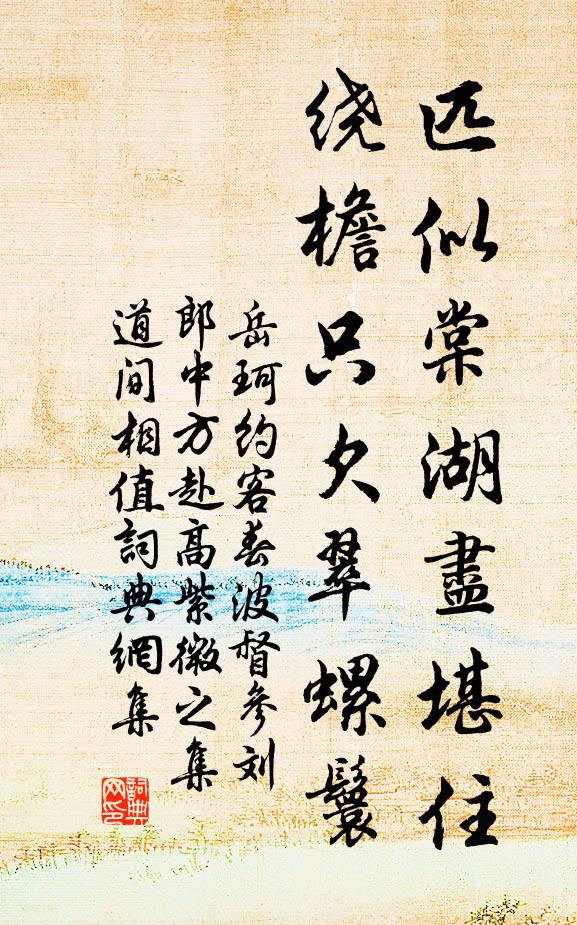 匹似棠湖盡堪住
绕檐只欠翠螺鬟
岳珂约客春波督参刘
郎中方赴高紫微之集
道间相值詞典網集
詞典
网印